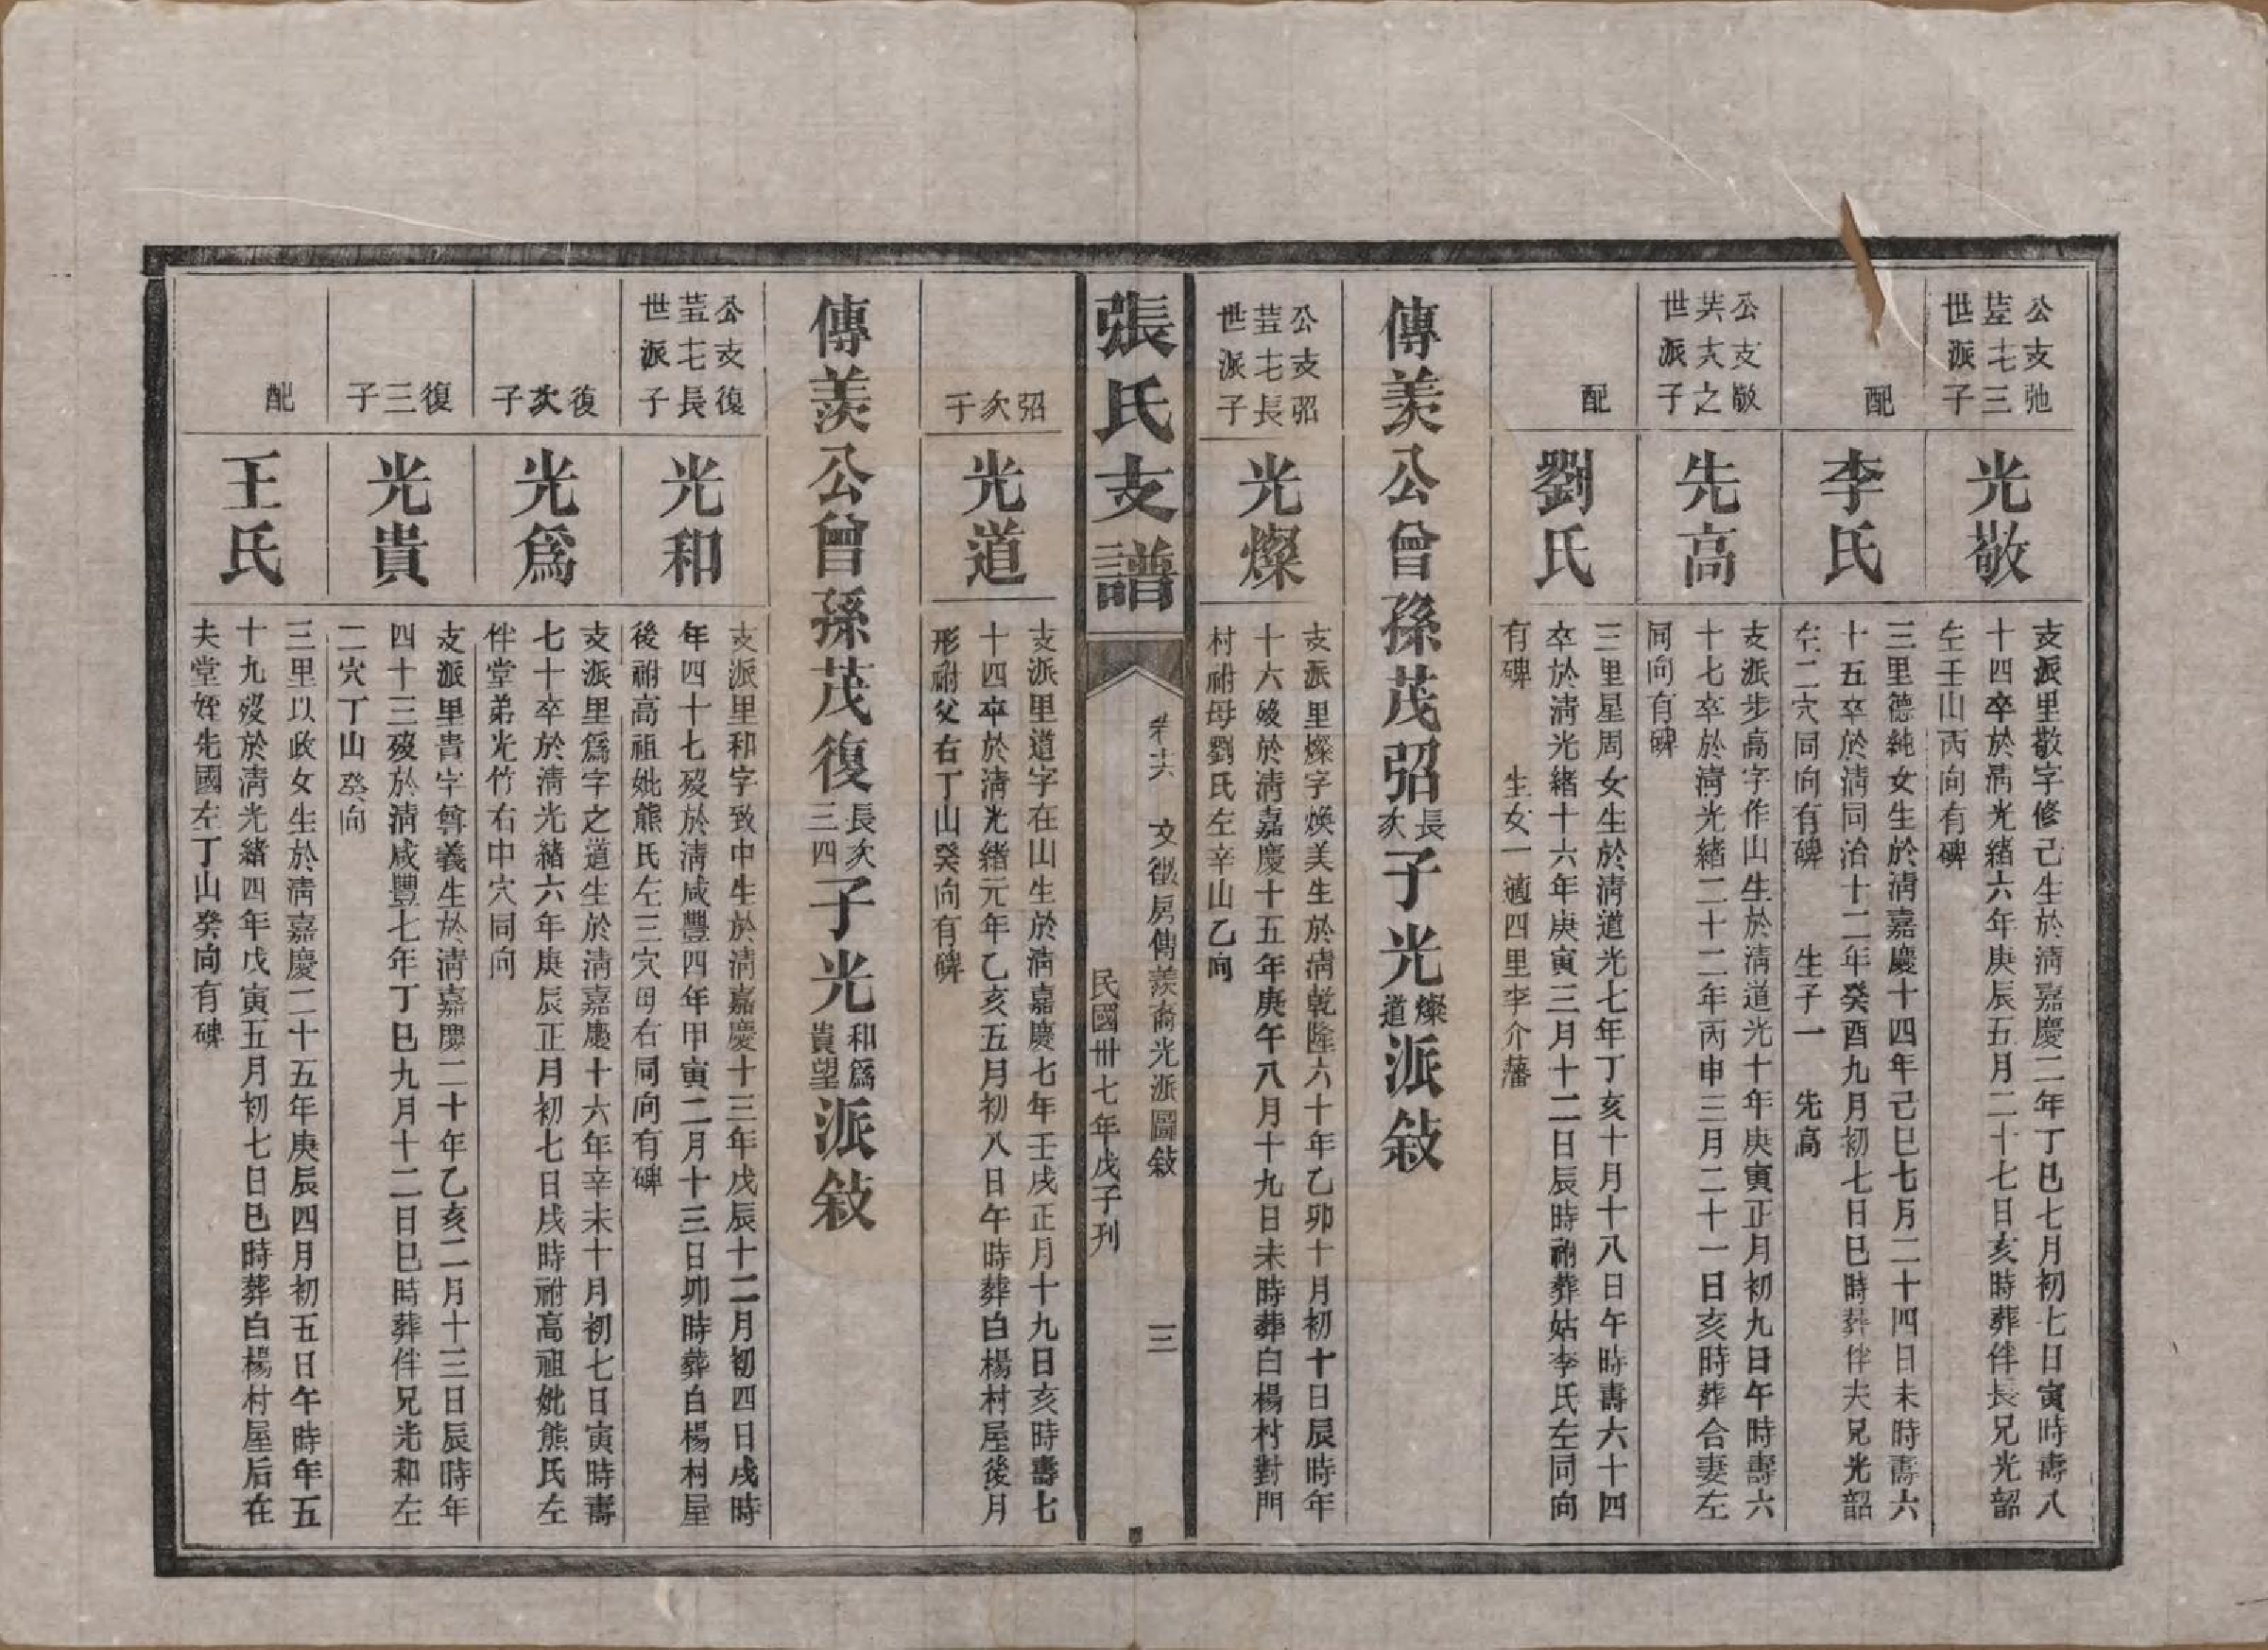 公支弛
荳七三
世派子
光敬
支派里敬字修己生於清嘉慶二年丁巳七月初七日寅時壽八
十四卒於清光緒六年庚辰五月二十七日亥時葬伴長兄光韶
左壬山丙向有碑
配
李氏
三里德純女生於清嘉慶十四年己巳七月二十四日未時壽六
十五卒於清同治十二年癸酉九月初七日巳時葬伴夫兄光韶
左二穴同向有碑 生子一 先高
公支敬
共大之
世派子
先高
支派步高字作山生於清道光十年庚寅正月初九日午時壽六
十七卒於清光緒二十二年丙申三月二十一日亥時葬合妻左
同向有碑
配
劉氏
三里星周女生於清道光七年丁亥十月十八日午時壽六十四
卒於清光緒十六年庚寅三月十二日辰時祔葬姑李氏左同向
有碑 生女一適四里李介藩
傳羨公曾孫茂弨長次子光燦道派敍
公支弨
荳七長
世派子
光燦
支派里燦字煥美生於清乾隆六十年乙卯十月初十日辰時年
十六歿於清嘉慶十五年庚午八月十九日未時葬白楊村對門
村祔母劉氏左辛山乙向
張氏支譜
卷十六 文徵房傳羨裔光派圖敍 三
民國卅七年戊子刊
弨次子
光道
支派里道字在山生於清嘉慶七年壬戌正月十九日亥時壽七
十四卒於清光緒元年乙亥五月初八日午時葬白楊村屋後月
形祔父右丁山癸向有碑
傳羨公曾孫茂復長次三四子光和爲貴望派敍
公支復
荳七長
世派子
光和
支派里和字致中生於清嘉慶十三年戊辰十二月初四日戌時
年四十七歿於清咸豐四年甲寅二月十三日卯時葬白楊村屋
後祔高祖妣熊氏左三穴母右同向有碑
復次子
光爲
支派里爲字之道生於清嘉慶十六年辛未十月初七日寅時壽
七十卒於清光緒六年庚辰正月初七日戌時祔高祖妣熊氏左
伴堂弟光竹右中穴同向
復三子
光貴
支派里貴字尊義生於清嘉慶二十年乙亥二月十三日辰時年
四十三歿於清咸豐七年丁巳九月十二日巳時葬伴兄光和左
二穴丁山癸向
配
王氏
三里以政女生於清嘉慶二十五年庚辰四月初五日午時年五
十九歿於清光緒四年戊寅五月初七日巳時葬白楊村屋后在
夫堂姪先國左丁山癸向有碑